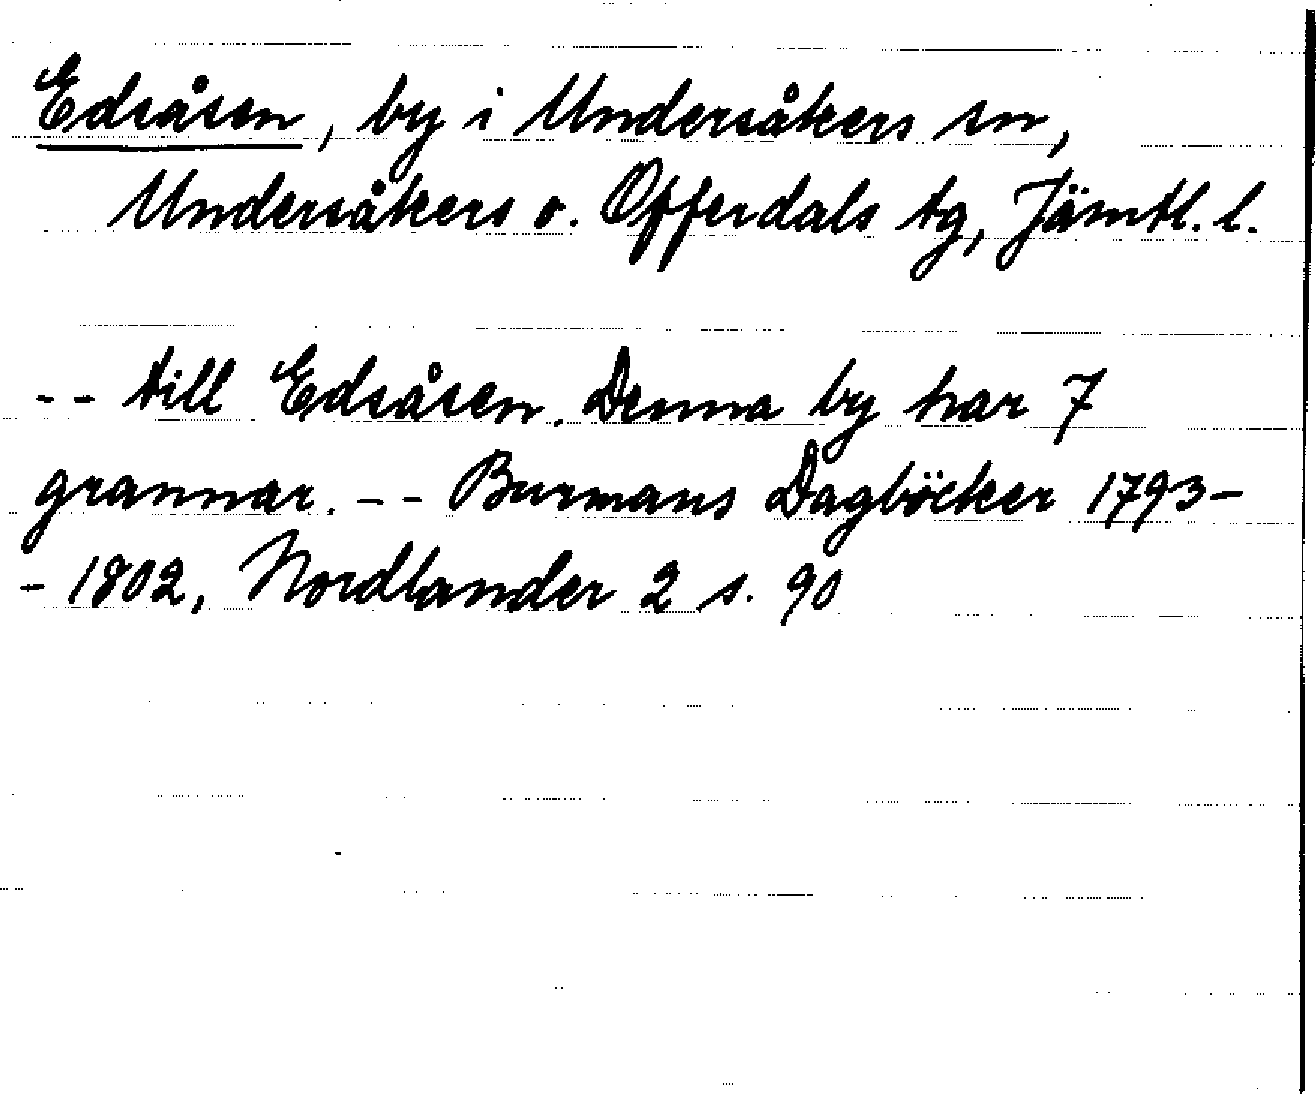 Edsåsen, by i Undersåkers sn,
Undersåkers o. Offerdals tg, Jämtl. l.
-- till Edsåsen. Denna by har 7
grannar. -- Burmans Dagböcker 1793-
- 1802, Nordlander 2 s. 90